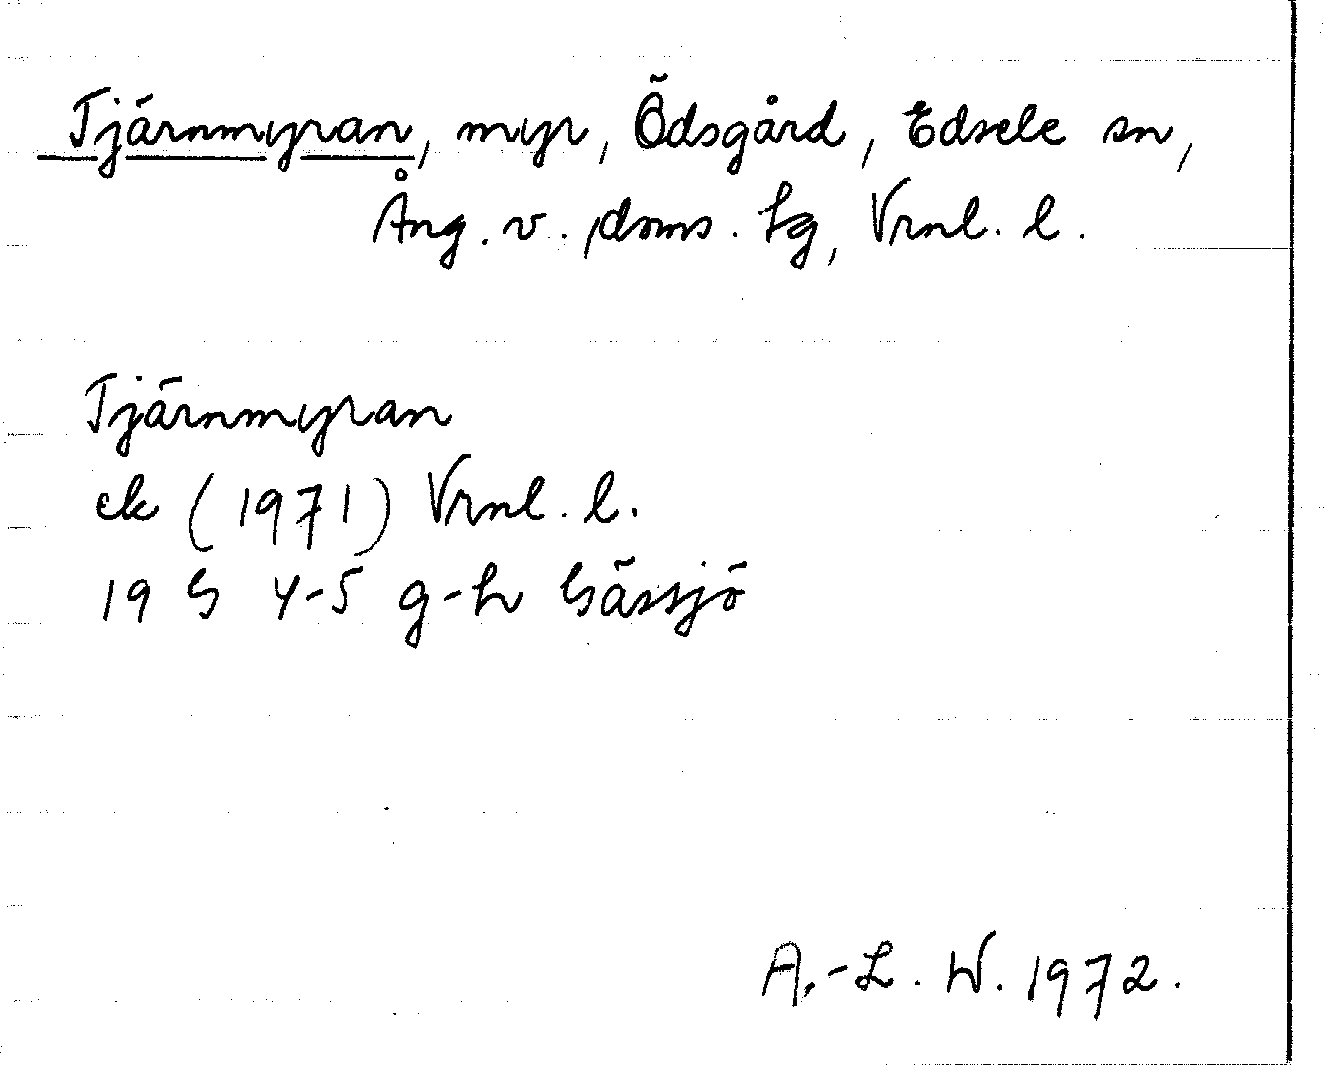 Tjärnmyran, myr, Ödsgård, Edsele sn,
Ång. v. doms. tg, Vrnl. l.
Tjärnmyran
ek (1971) Vrnl. l.
19 G 4-5 g-h Gåssjö
A.-L. W. 1972.